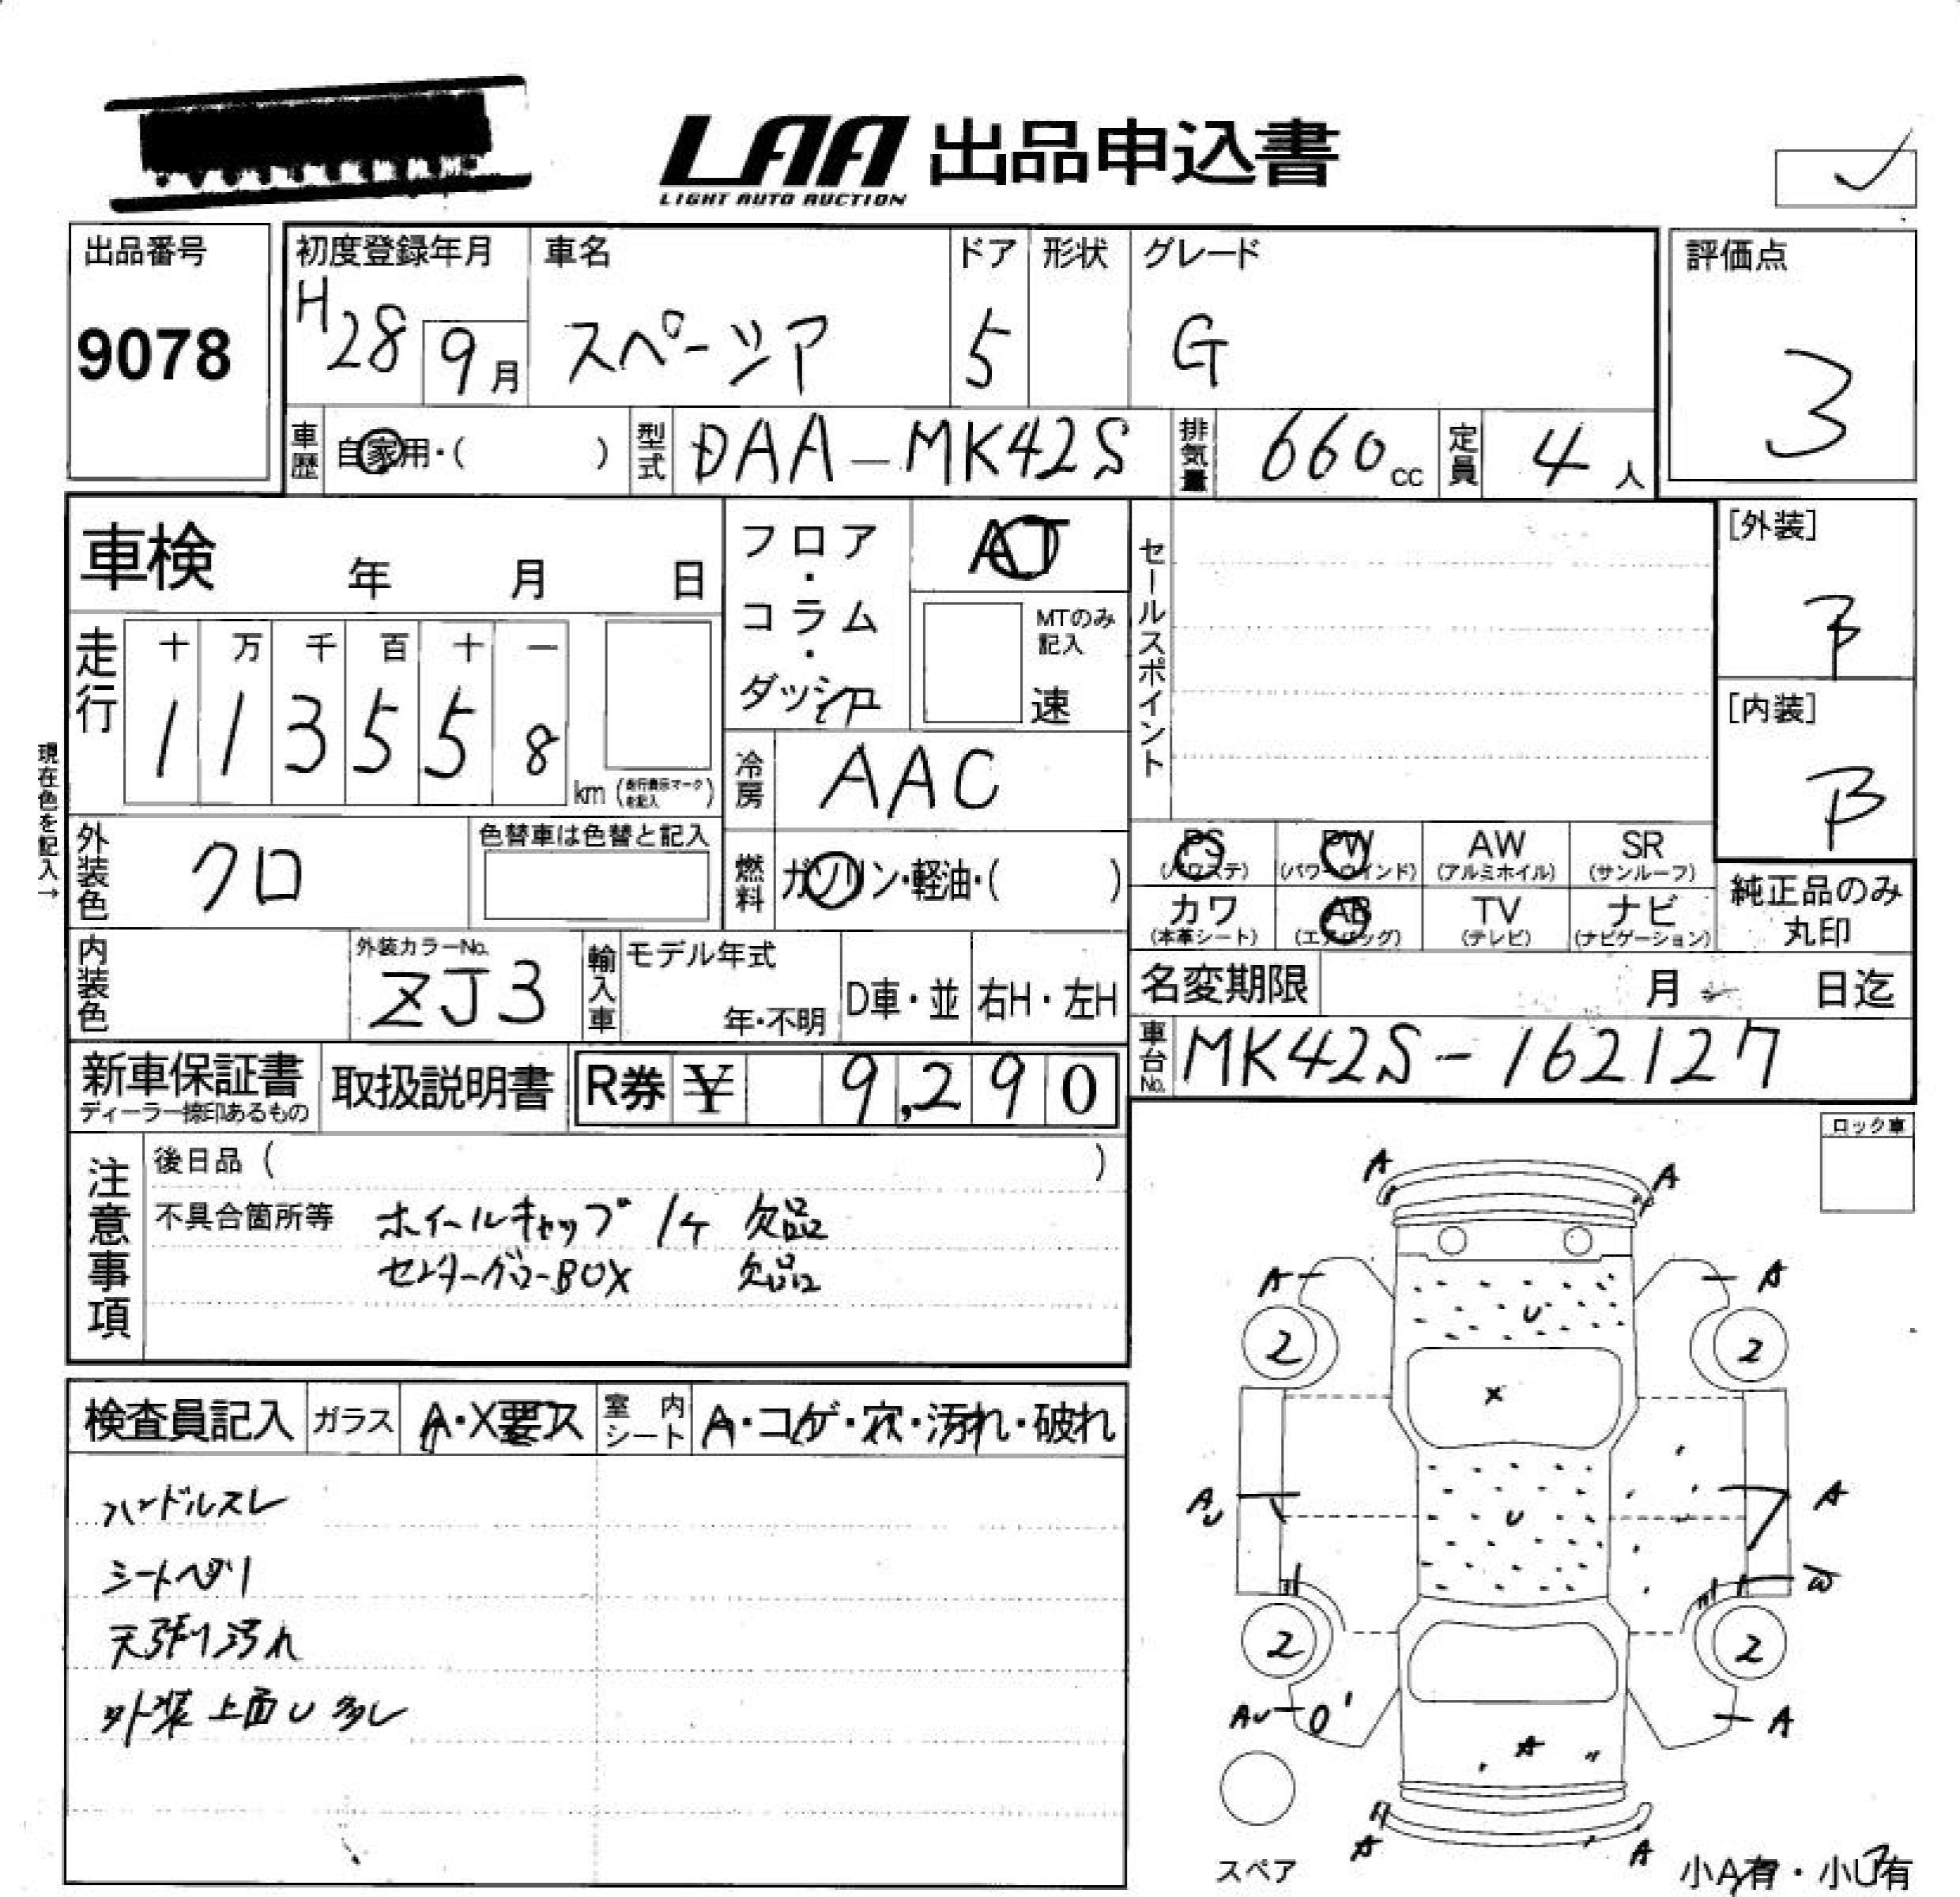 LAA 出品申込書
LIGHT AUTO AUCTION
出品番号
9078
初度登録年月
H28 9月
車名
スペーシア
ドア
5
形状
グレード
G
評価点
3
車歴 自家用・( )
型式 DAA-MK42S
排気量 660cc
定員 4人
車検 年 月 日
フロア・コラム・ダッシュ
AT
MTのみ記入
速
セールスポイント
[外装]
B
[内装]
B
走行
十 万 千 百 十 一
1 1 3 5 5 8 km (走行表示マークを記入)
現在色を記入→
冷房 AAC
外装色 クロ
色替車は色替と記入
燃料 ガソリン・軽油・( )
PS (パワステ) PW (パワーウインド) AW (アルミホイル) SR (サンルーフ)
カワ (本革シート) AB (エアバッグ) TV (テレビ) ナビ (ナビゲーション)
純正品のみ丸印
内装色
外装カラーNo.
ZJ3
輸入車 モデル年式
年・不明
D車・並
右H・左H
名変期限 月 日迄
車台No. MK42S-162127
新車保証書
ディーラー捺印あるもの
取扱説明書
R券 ¥ 9,290
ロック車
注意事項
後日品( )
不具合箇所等 ホイールキャップ 1ケ 欠品
センターグローBOX 欠品
検査員記入 ガラス A・X要ス 室内シート A・コゲ・穴・汚れ・破れ
ハンドルスレ
シートヘタリ
天張り汚れ
外装上面U多し
A A
A A
U
2 2
X
AU U A
W
2 2
AU A
A
A A
スペア
小A有・小U有